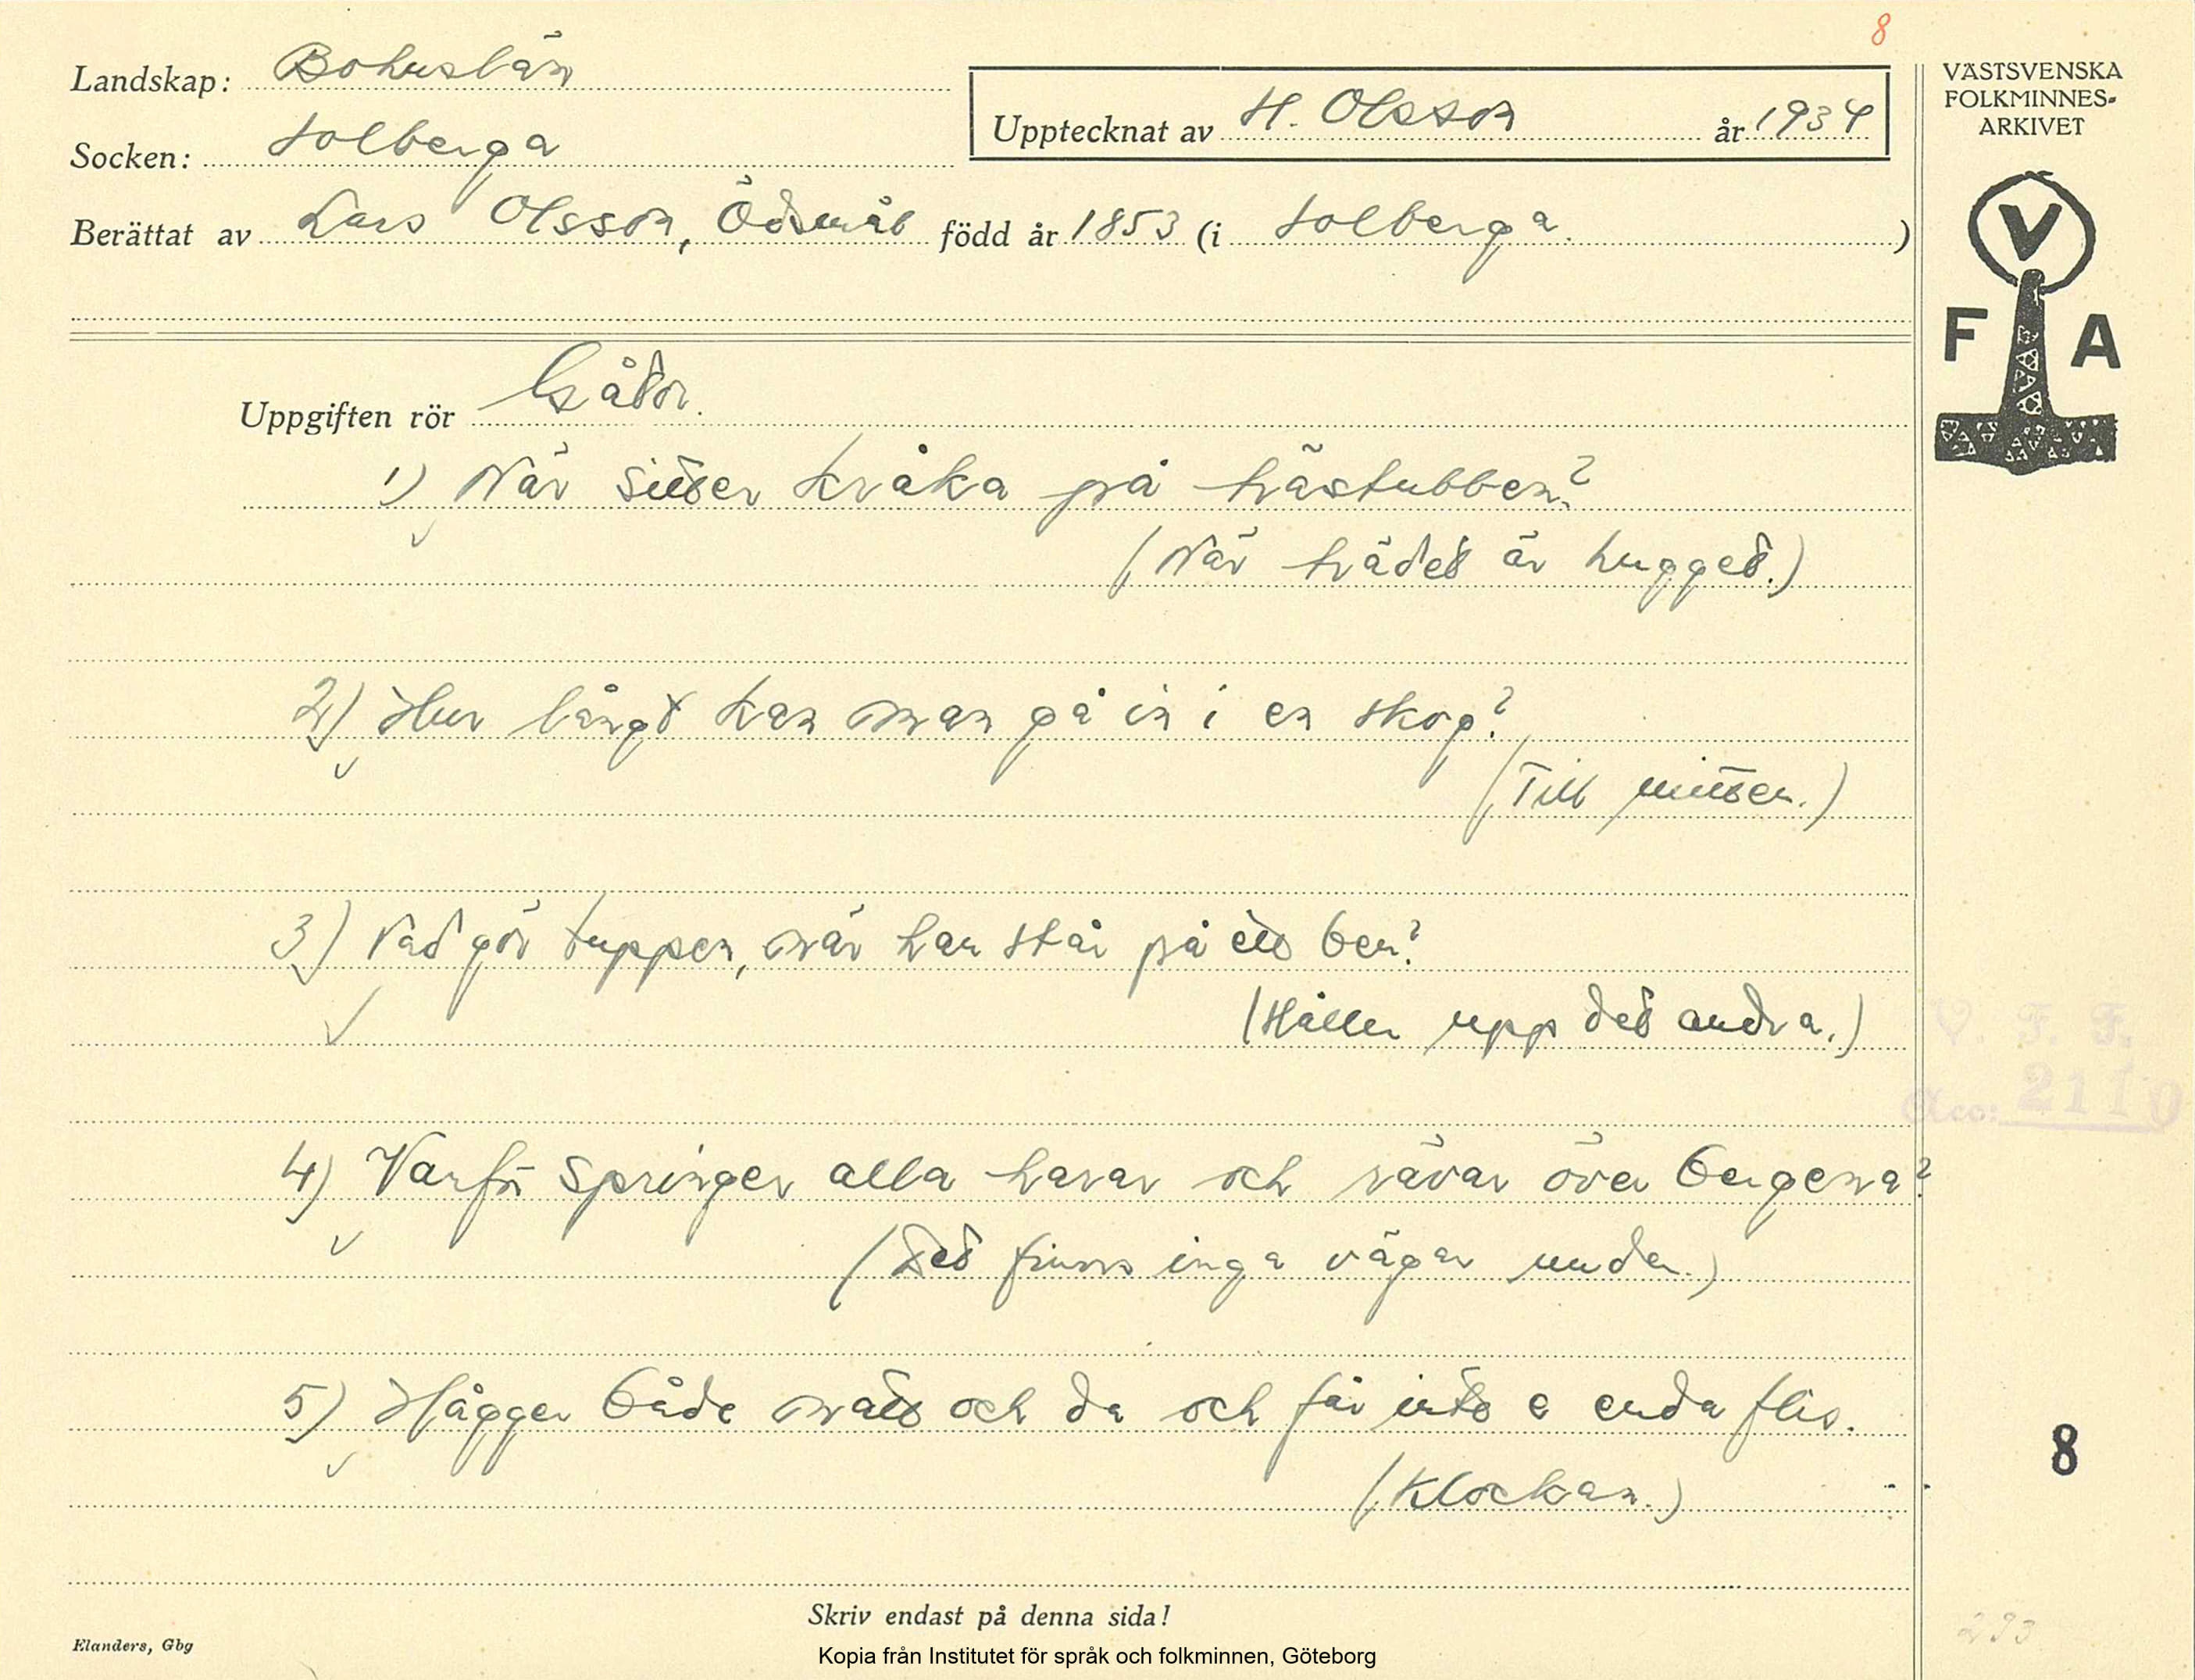 8
Landskap: Bohuslän
Upptecknat av H. Olsson år 1934
VÄSTSVENSKA
FOLKMINNES-
ARKIVET
Socken: Solberga
Berättat av Lars Olsson, Ödsmål född år 1853 (i Solberga.)
V
F A
Uppgiften rör Gåtor.
1) När sitter kråka på trästubben?
(När trädet är hugget.)
2) Hur långt kan man gå in i en skog?
(Till mitten.)
3) Vad gör tuppen, när han står på ett ben?
(Håller upp det andra.)
V. F. F.
Acc: 2110
4) Varför springer alla harar och rävar över bergena?
(Det finns inga vägar under.)
5) Hågger både natt och da och får inte e enda flis.
(Klockan.)
8
Skriv endast på denna sida!
Elanders, Gbg
293
Kopia från Institutet för språk och folkminnen, Göteborg